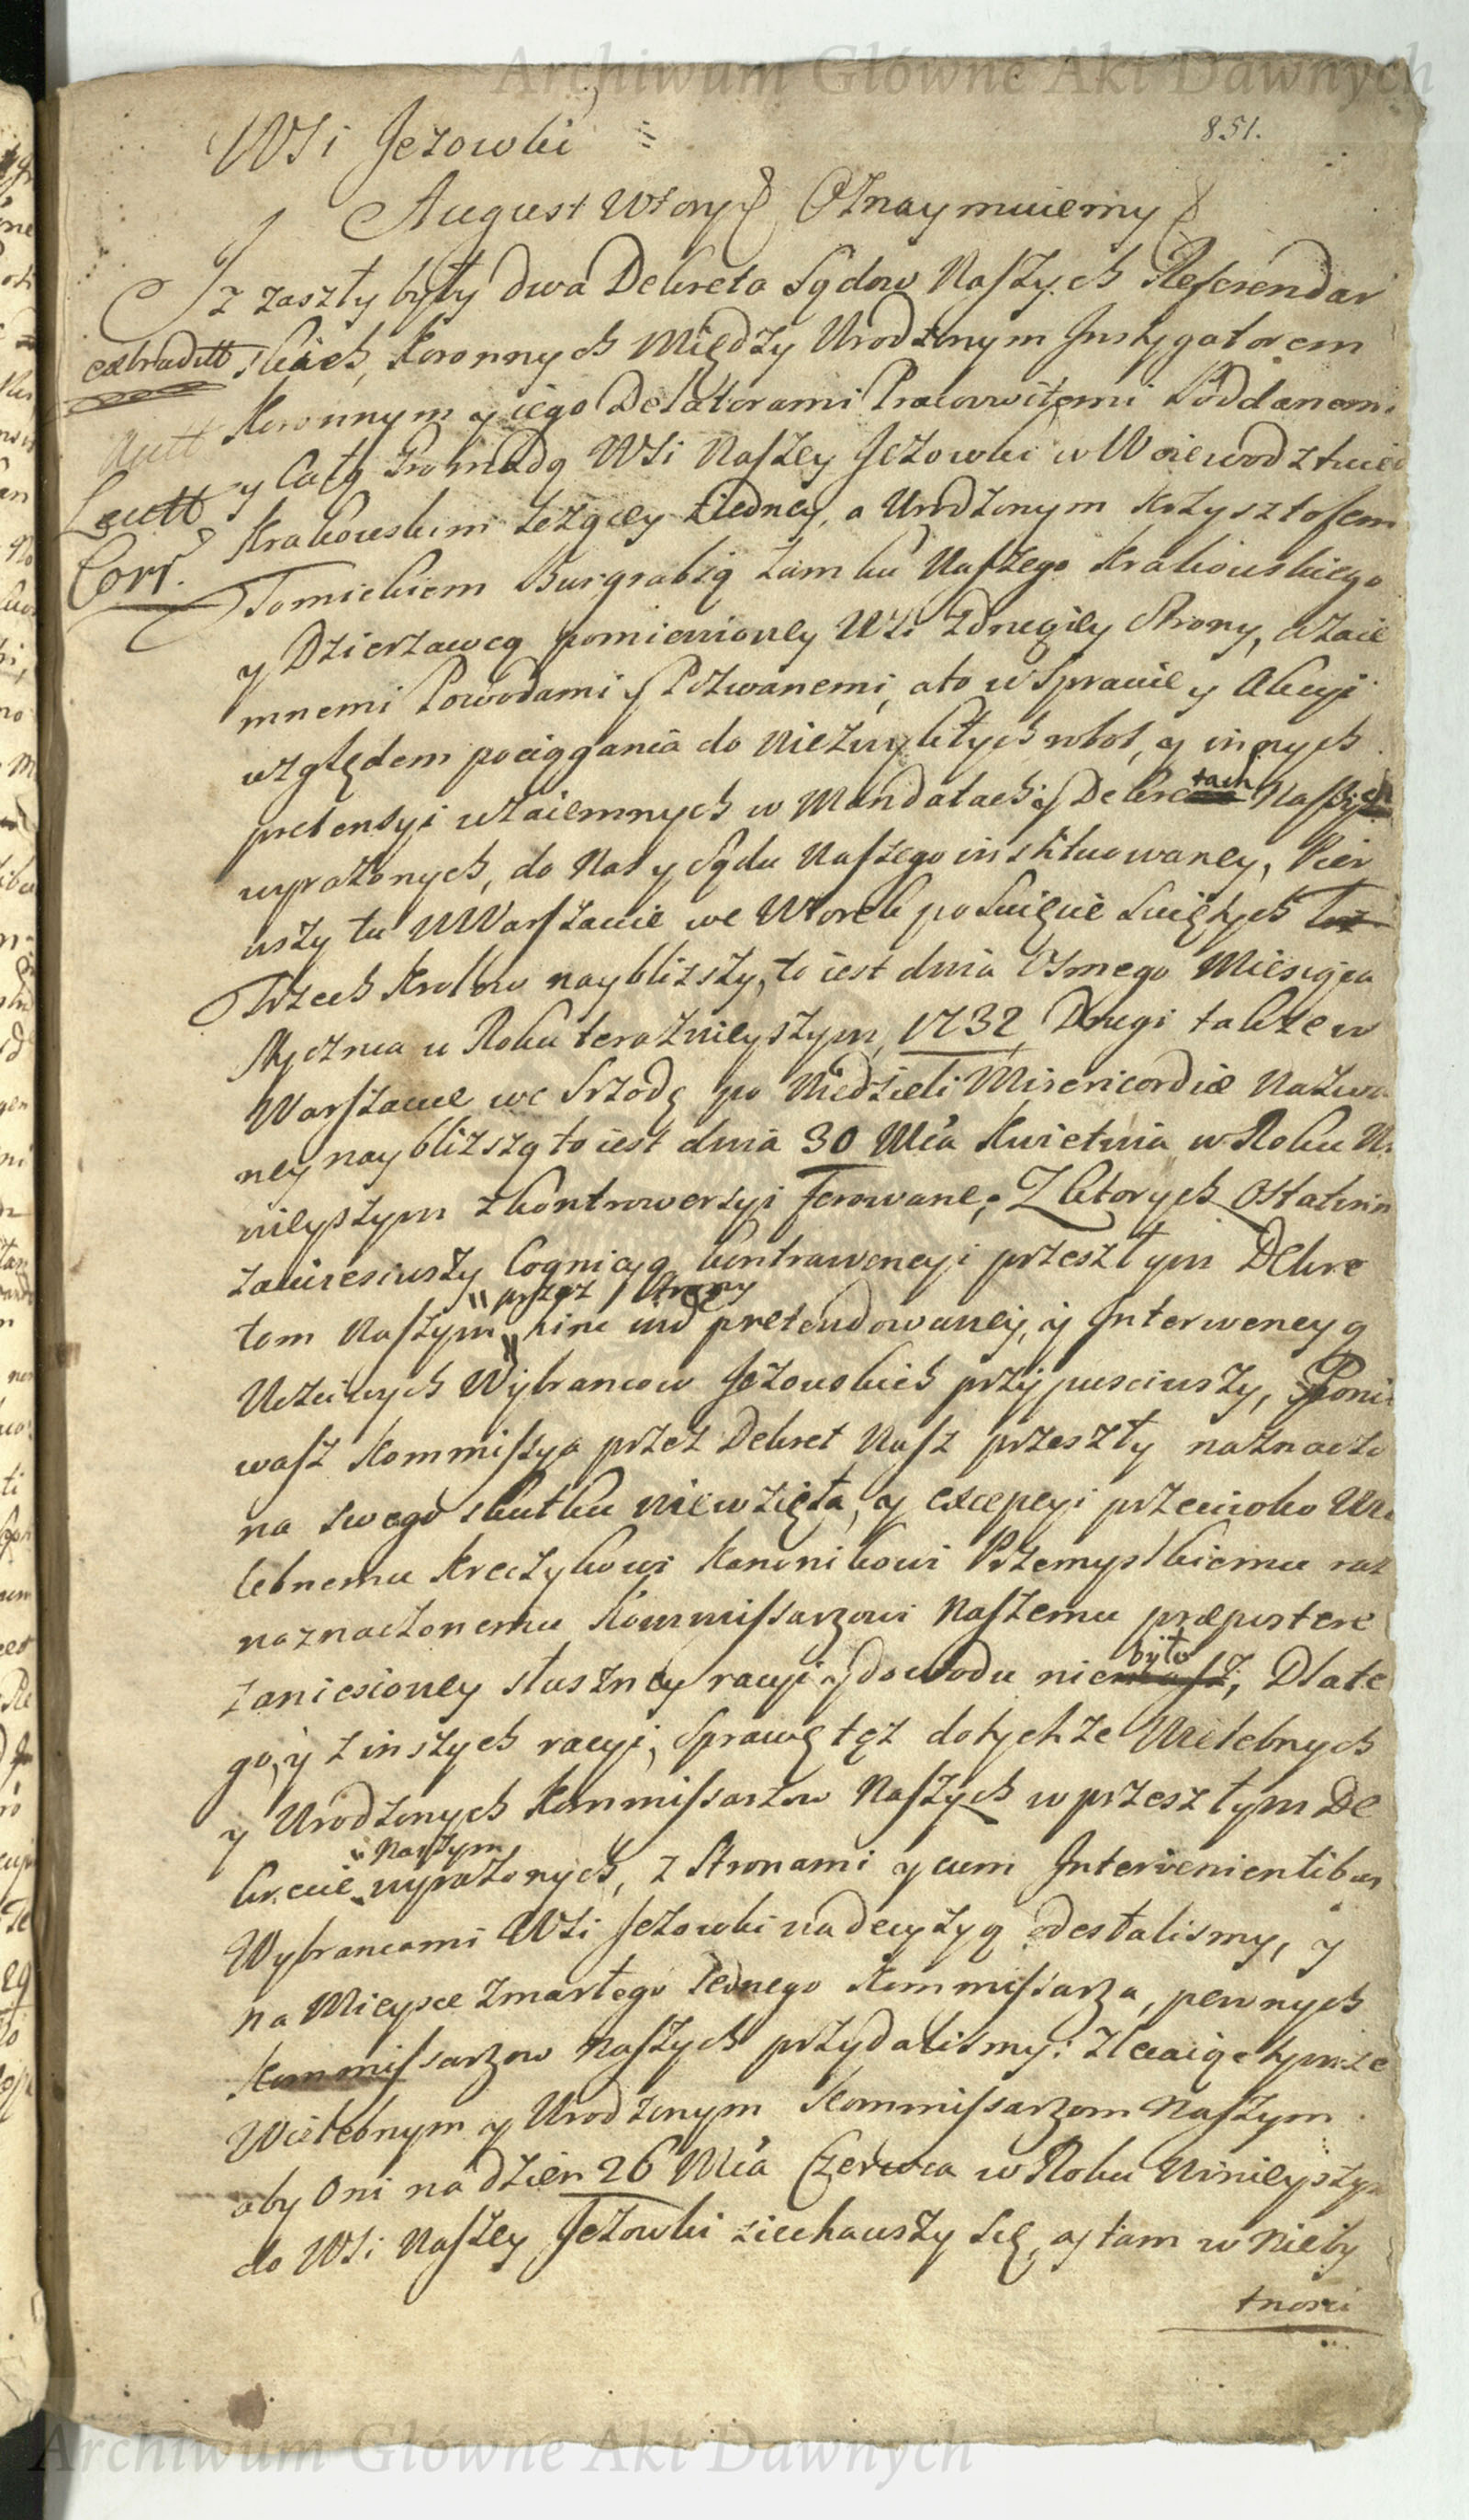 Archiwum Główne Akt Dawnych
851.
Wsi Jezowki
August Wtory Oznaymuiemy
Iz zaszły były dwa Dekreta Sądow Naszych Referendar
extraditt skich, Koronnych Między Urodzonym Instygatorem
Koronnym y iego Delatorami Pracowitemi Poddanemi
y Całą Gromadą Wsi Naszey Jezowki w Woiewodztwie
Lectt
Krakowskim Lezącey z iedney, a Urodzonym Krzysztofem
Corr.
Tomickiem Burgrabią Zamku Naszego Krakowskiego
y Dzierzawcą pomienioney Wsi z drugiey Strony, Wzaie
mnemi Powodami y Pozwanemi, a to w Sprawie y Akcyi
względem pociągania do niezwykłych robot, y innych
pretensyi wzaiemnych w Mandatach y Dekretach Naszych
wyrazonych, do Nas y Sądu Naszego instituowaney, Pier
wszy tu w Warszawie we Wtorek po Święcie Swiętych
Trzech Krolow naybliższy, to iest dnia Osmego Miesiąca
Stycznia w Roku teraznieyszym, 1732, Drugi także w
Warszawie we Srzodę po Niedzieli Misericordiæ Nazwa
ney naybliższą to iest dnia 30 Mca Kwietnia w Roku
nieyszym z kontrowersyi ferowane; Z ktorych Ostatnim
zawiesiwszy Cognicyą kontrawencyi przeszłym Dekre
tom Naszym przez Strony hinc inde pretendowaney, y Interwencyą
Uczciwych Wybrancow Jezowskich przypusciwszy, Ponie
wasz Kommissya przez Dekret Nasz przeszły naznaczo
na swego skutku niewzięła, y excepcyi przeciwko Wie
lebnemu Kreczykowi Kanonikowi Przemyslkiemu raz
naznaczonemu Kommissarzowi Naszemu præpostere
zaniesioney słuszney racyi y dowodu nie było, Dlate
go, y z inszych racyi, Sprawę tęz do tychze Wielebnych
y Urodzonych Kommissarzow Naszych w przeszłym De
krecie Naszym wyrazonych, z Stronami y cum Intervenientibus
Wybrancami Wsi Jezowki na decyzyą odesłalismy, y
na Mieysce zmarłego iednego Kommissarza, pewnych
Kommissarzow Naszych przydalismy: Zlecaiąc tymze
Wielebnym y Urodzonym Kommissarzom Naszym
aby Oni na dzien 26 Mca Czerwca w Roku ninieyszym
do Wsi Naszey Jezowki ziechawszy się, y tam w nieby
tnosci
Archiwum Główne Akt Dawnych